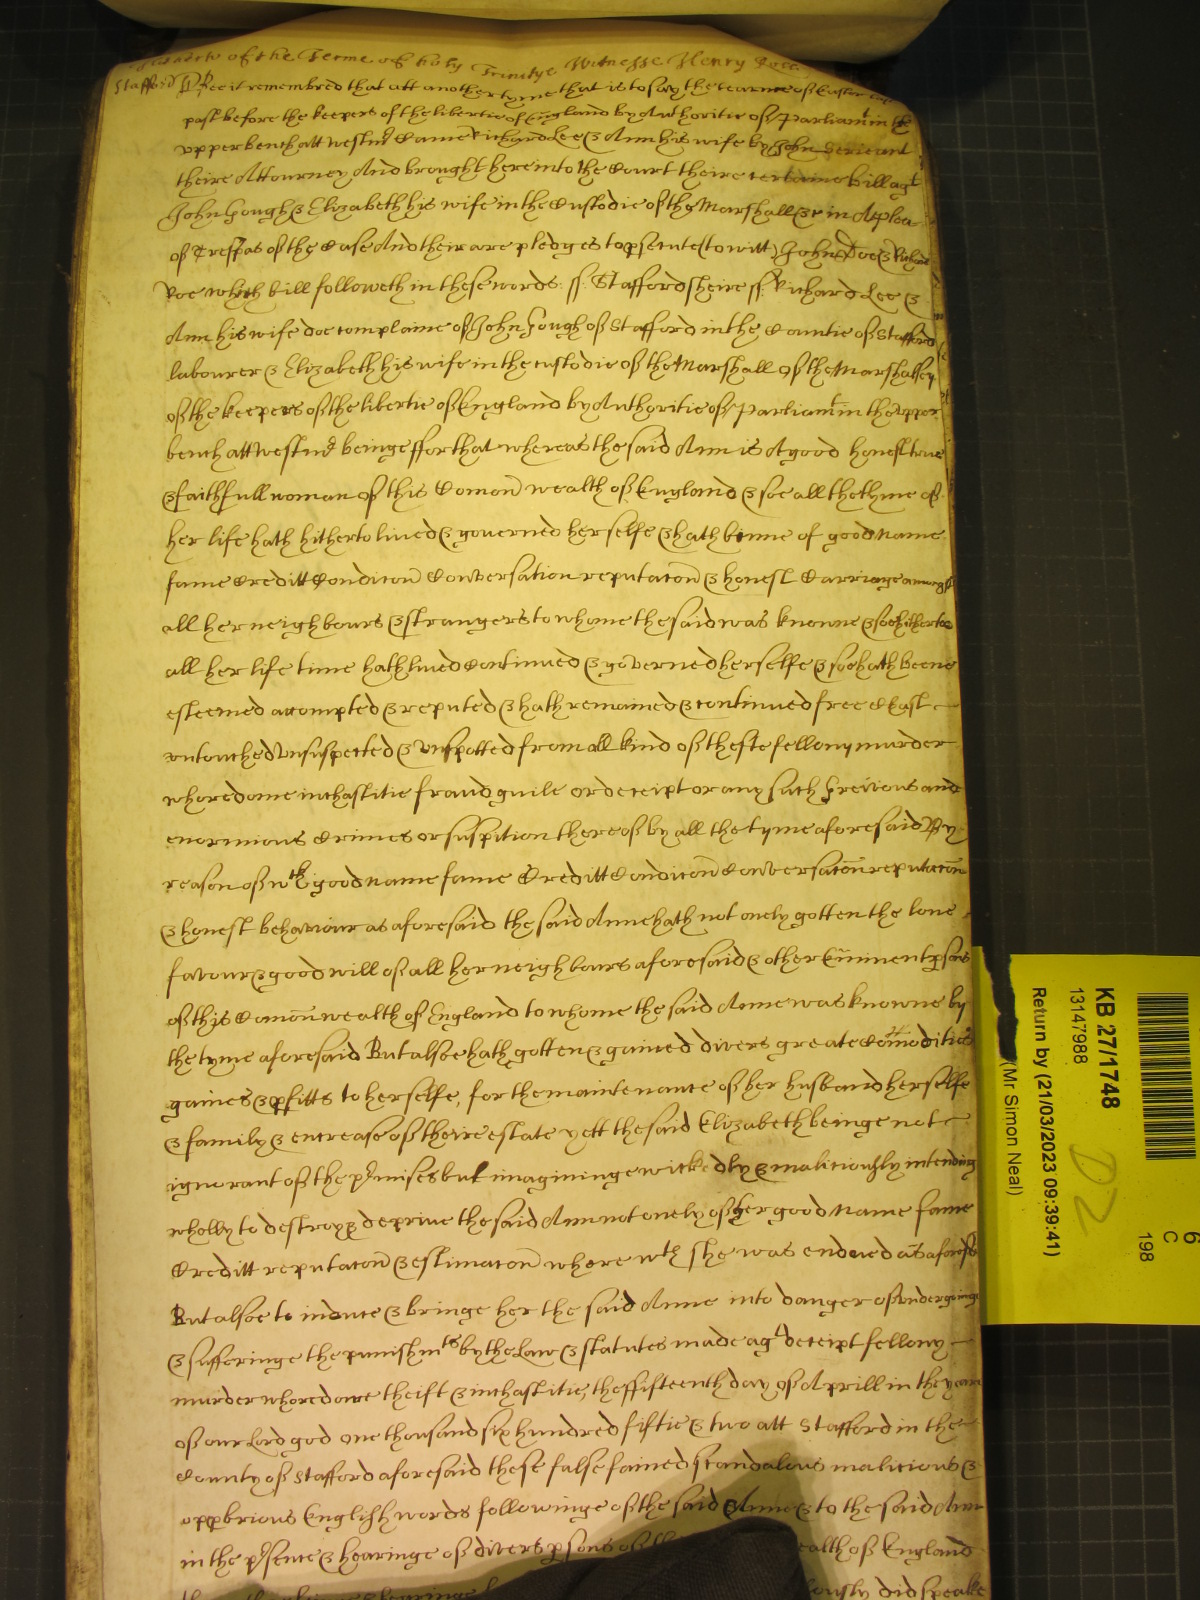 of the Terme of holy Trinitye Witnesse Henry Rolle
Stafford Bee it remembred that att another tyme that is to say the tearme of Easter last
past before the keepers of the libertie of England by Authoritie of Parliamt in the
upper bench att Westmr Came Richard Lee & Ann his wife by John Serieant
theire Attourney And brought here into the Court theire certaine bill agt
John Gough & Elizabeth his wife in the Custodie of the Marshall &c in A plea
of Trespas of the Case And their are pledges to psecute (to witt) John Doe & Richard
Roe which bill followeth in these words ss Staffordsheire ss Richard Lee &
Ann his wife doe complaine of John Gough of Stafford in the Countie of Stafford
labourer & Elizabeth his wife in the custodie of the Marshall of the Marshalsey
of the keepers of the libertie of England by Authoritie of Parliamt in the upper
bench att Westmr beinge ffor that whereas the said Ann is A good honest true
& faithfull woman of this Comon wealth of England & soe all the tyme of
her life hath hitherto lived & governed herselfe & hath beene of good name
fame Creditt Conditon Conversation reputaton & honest Carriage amongst
all her neighbours & strangers to whome the said was knowne & soe hitherto
all her life time hath lived Continued & governed herselfe & soe hath beene
esteemed accompted & reputed & hath remained & continued free & Cast
untouched unsuspected & unspotted from all kind of thefte fellony murder
whoredome inchastitie fraud guile or deceipt or any such Greivous and
enormious Crimes or suspition thereof by all the tyme aforesaid By
reason of wch good name fame Creditt Conditon Conversaton reputaton
& honest behaviour as aforesaid the said Anne hath not onely gotten the love
favour & good will of all her neighbours aforesaid & other Eminent psons
of this Comon wealth of England to whome the said Anne was knowne by
the tyme aforesaid But alsoe hath gotten & gained divers greate Comodities
gaines & pfitts to herselfe, for the maintenance of her husband herselfe
& family & encrease of theire estate yett the said Elizabeth beinge not
ignorant of the pmises but imagininge wickedly & malitiously intending
wholly to destroy & deprive the said Ann not onely of her good name fame
Creditt reputaton & estimaton where wth she was endued as aforesd
But alsoe to induce & bringe her the said Anne into danger of undergoinge
& sufferinge the punishmts by the Law & statutes made agt deceipt fellony
murder whoredome theift & inchastitie, the ffifteenth day of Aprill in the yeare
of our Lord god one thousand six hundred fiftie & two att Stafford in the
County of Stafford aforesaid these false fained scandalous malitious &
oppbrious English words followinge of the said Anne & to the said Ann
in the psence & hearinge of divers psons of ealth of England
ously did speake
KB 27/1748
13147988
Return by (21/03/2023 09:39:41)
(Mr Simon Neal)
D2
6
C
198